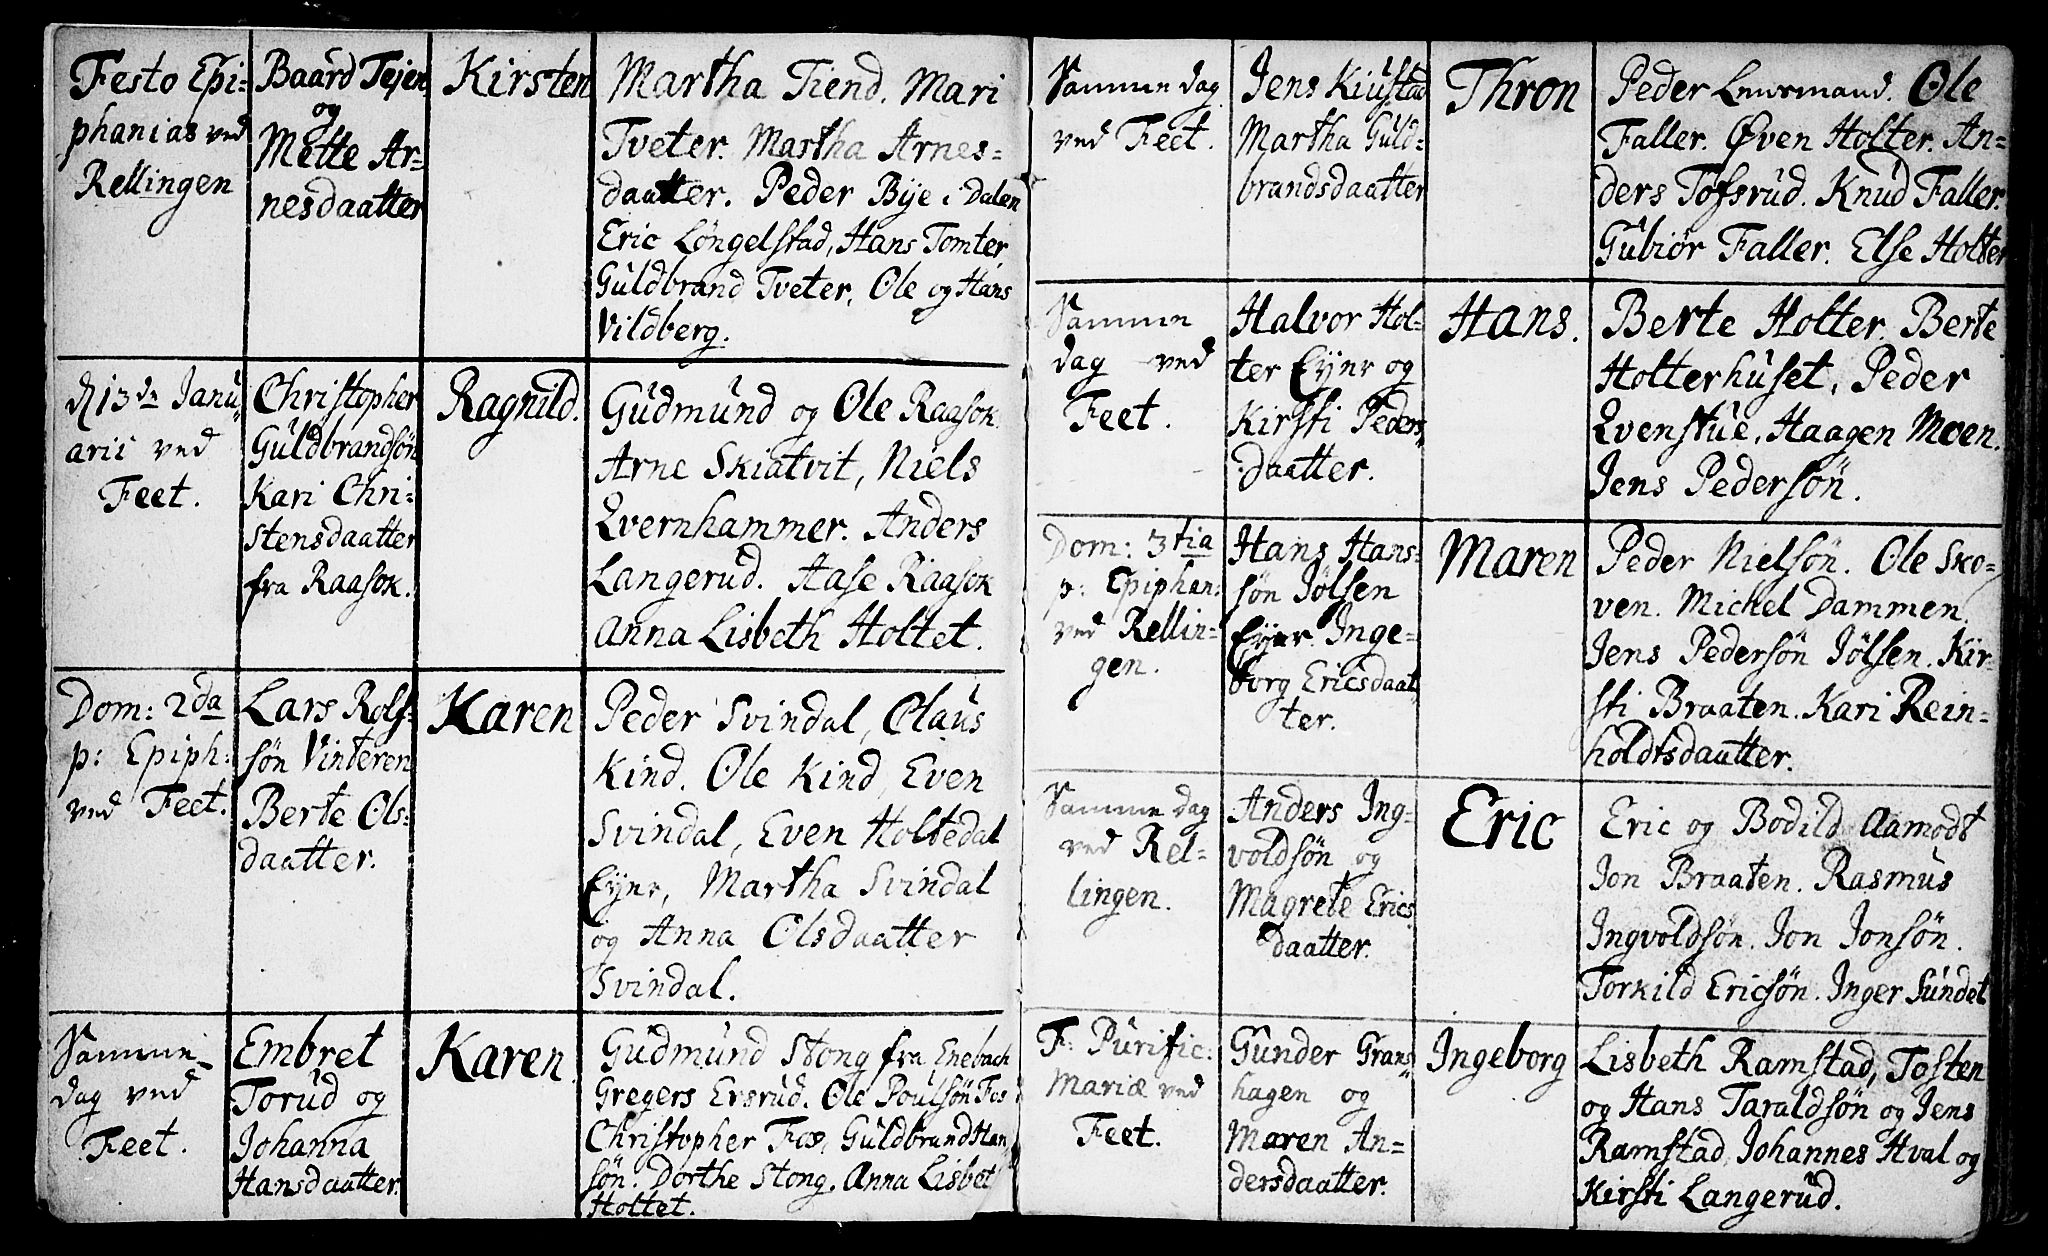 Festo Epi-
phanias ved
Rellingen
Baard Tejen
og
Mette Ar-
nesdaatter
Kirsten
Martha Tiend. Mari
Tveter. Martha Arnes-
daatter. Peder Bye i Dalen
Eric Löngelstad, Hans Tomter,
Guldbrand Tveter, Ole og Hans
Vildberg.
d 13de Janu-
arii ved
Feet.
Christopher
Guldbrandsön
Kari Chri-
stensdaatter
fra Raasok.
Ragnild.
Gudmund og Ole Raasok.
Arne Skiatvit, Niels
Qvernhammer. Anders
Langerud. Aase Raasok
Anna Lisbeth Holtet.
Dom: 2da
p: Epiph:
ved Feet.
Lars Rolf-
søn Vinteren
Berte Ols-
daatter.
Karen
Peder Svindal, Olaus
Kind. Ole Kind, Even
Svindal, Even Holtedal
Eyer, Martha Svindal
og Anna Olsdaatter
Svindal.
Samme
dag ved
Feet.
Embret
Torud og
Johanna
Hansdaatter.
Karen.
Gudmund Stong fra Enebach
Gregers Ersrud. Ole Poulsön Fos
Christopher Fos, Guldbrand Han-
søn. Dorthe Stong. Anna Lisbet
Holtet.
Samme dag
ved Feet.
Jens Kiustad
Martha Guld-
brandsdaatter
Thron
Peder Ole
Faller. Øven Holter. An-
ders Tofsrud. Knud Faller.
Gubiör Faller. Else Holter
Samme
dag ved
Feet.
Halvor Hol-
ter Eyer og
Kirsti Peders-
daatter.
Hans.
Berte Holter. Berte
Holterhuset, Peder
Evenstue, Haagen Moen.
Jens Pedersön.
Dom: 3tia
p: Epiphan:
ved Rellin-
gen.
Hans Hans-
søn Jölsen
Eyer. Inge-
borg Ericsdaat-
ter.
Maren
Peder Nielsön. Ole Sko-
ven. Michel Dammen.
Jens Pedersön Jölsen. Kir-
sti Braaten. Kari Rein-
holdtsdaatter.
Samme dag
ved Rel-
lingen.
Anders Ing-
voldsön og
Magrete Erics
daatter.
Eric
Eric og Bodild Aamodt
Jon Braaten. Rasmus
Ingvoldsön. Jon Jonsön.
Torkild Ericsön. Inger Sundet
F: Purific:
Mariæ ved
Feet.
Gunder Grans-
hagen og
Maren An-
dersdaatter.
Ingeborg
Lisbeth Ramstad, Tosten
og Hans Taraldsön og Jens
Ramstad, Johannes Hval og
Kirsti Langerud.